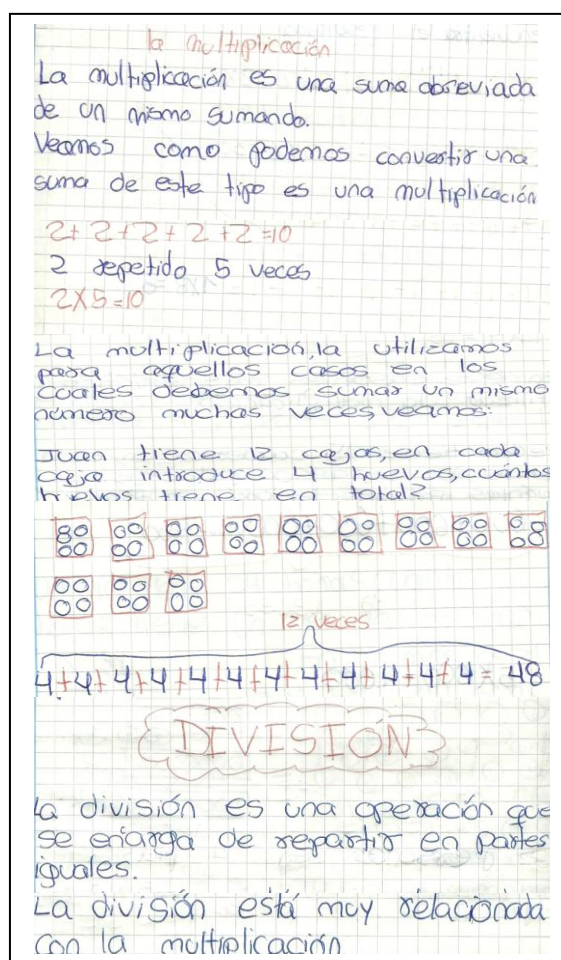 la multiplicación
La multiplicación es una suma abreviada
de un mismo sumando.
Veamos como podemos convertir una
suma de este tipo es una multiplicación
2+2+2+2+2=10
2 repetido 5 veces
2X5=10
La multiplicación, la utilizamos
para aquellos casos en los
cuales debemos sumar un mismo
número muchas veces, veamos:
Juan tiene 12 cajas, en cada
caja introduce 4 huevos, cuántos
huevos tiene en total?
12 veces
4+4+4+4+4+4+4+4+4+4+4+4= 48
DIVISIÓN
La división es una operación que
se encarga de repartir en partes
iguales.
La división está muy relacionada
con la multiplicación